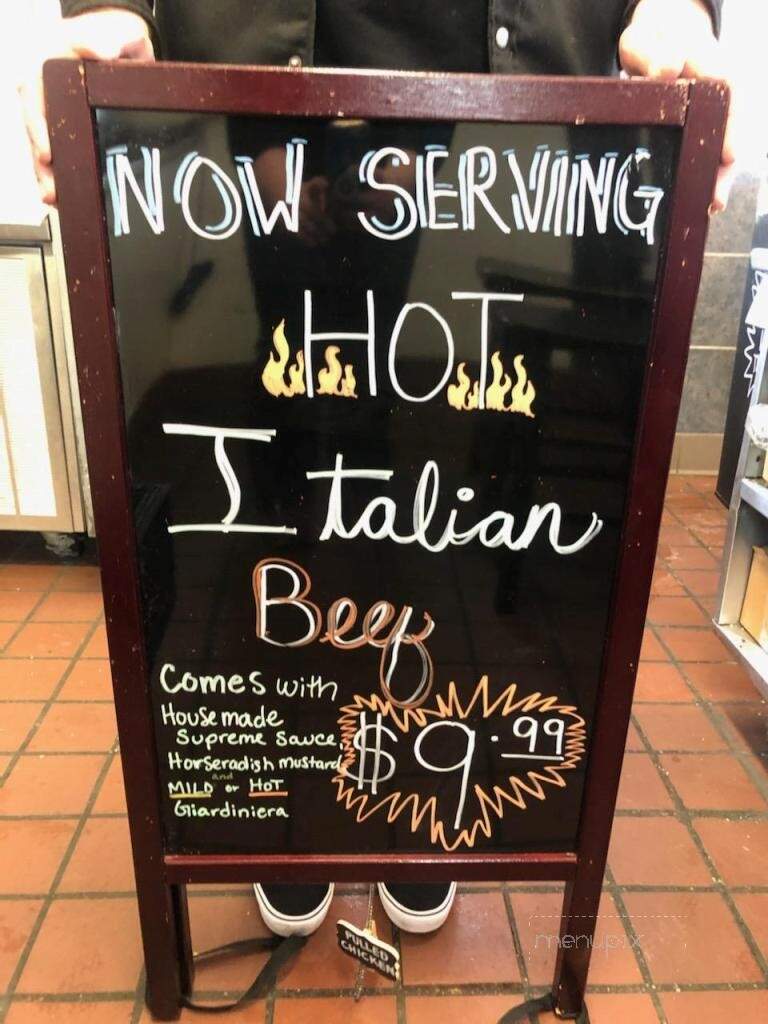 NOW SERVING
HOT
Italian
Beef
Comes with
House made
Supreme Sauce,
Horseradish mustard
and
MILD or HOT
Giardiniera
$9.99
PULLED
CHICKEN
menupix